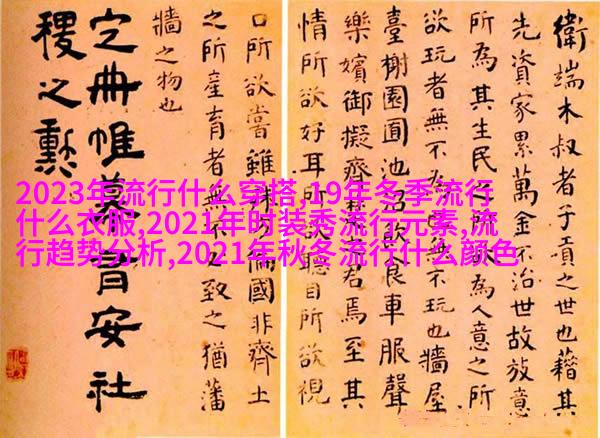 2023年流行什么穿搭,19年冬季流行
什么衣服,2021年时装秀流行元素,流
行趋势分析,2021年秋冬流行什么颜色
衛端木叔者子貢之世也藉其
先資家累萬金不治世故放意
所為其生民之所為人意之所
欲玩者無不為也無不玩也牆屋
臺榭園囿池車服聲
樂嬪御擬齊楚之君焉至其
情所欲好耳所欲聽目所欲視
口所欲嘗雖殊方偏國非齊土
之所產育者無不必致之猶藩
牆之物也
定冊帷幕有安社
稷之勳